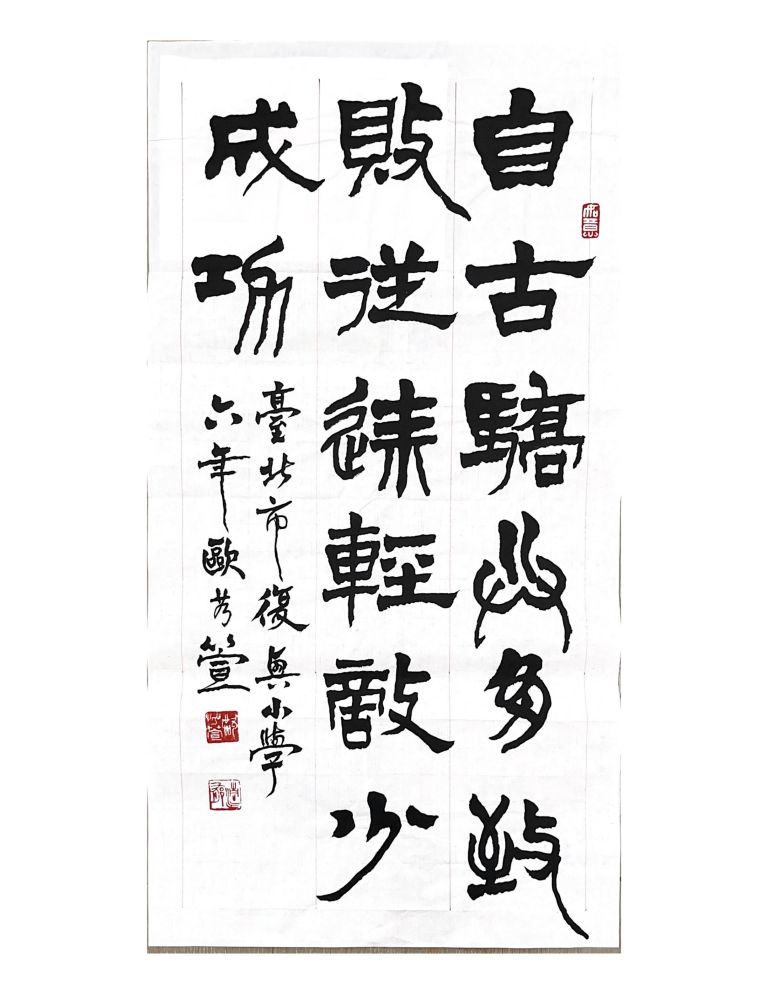 自古驕兵多致
敗從逨輕敵少
成功
臺北市復興小學
六年歐萱
如意